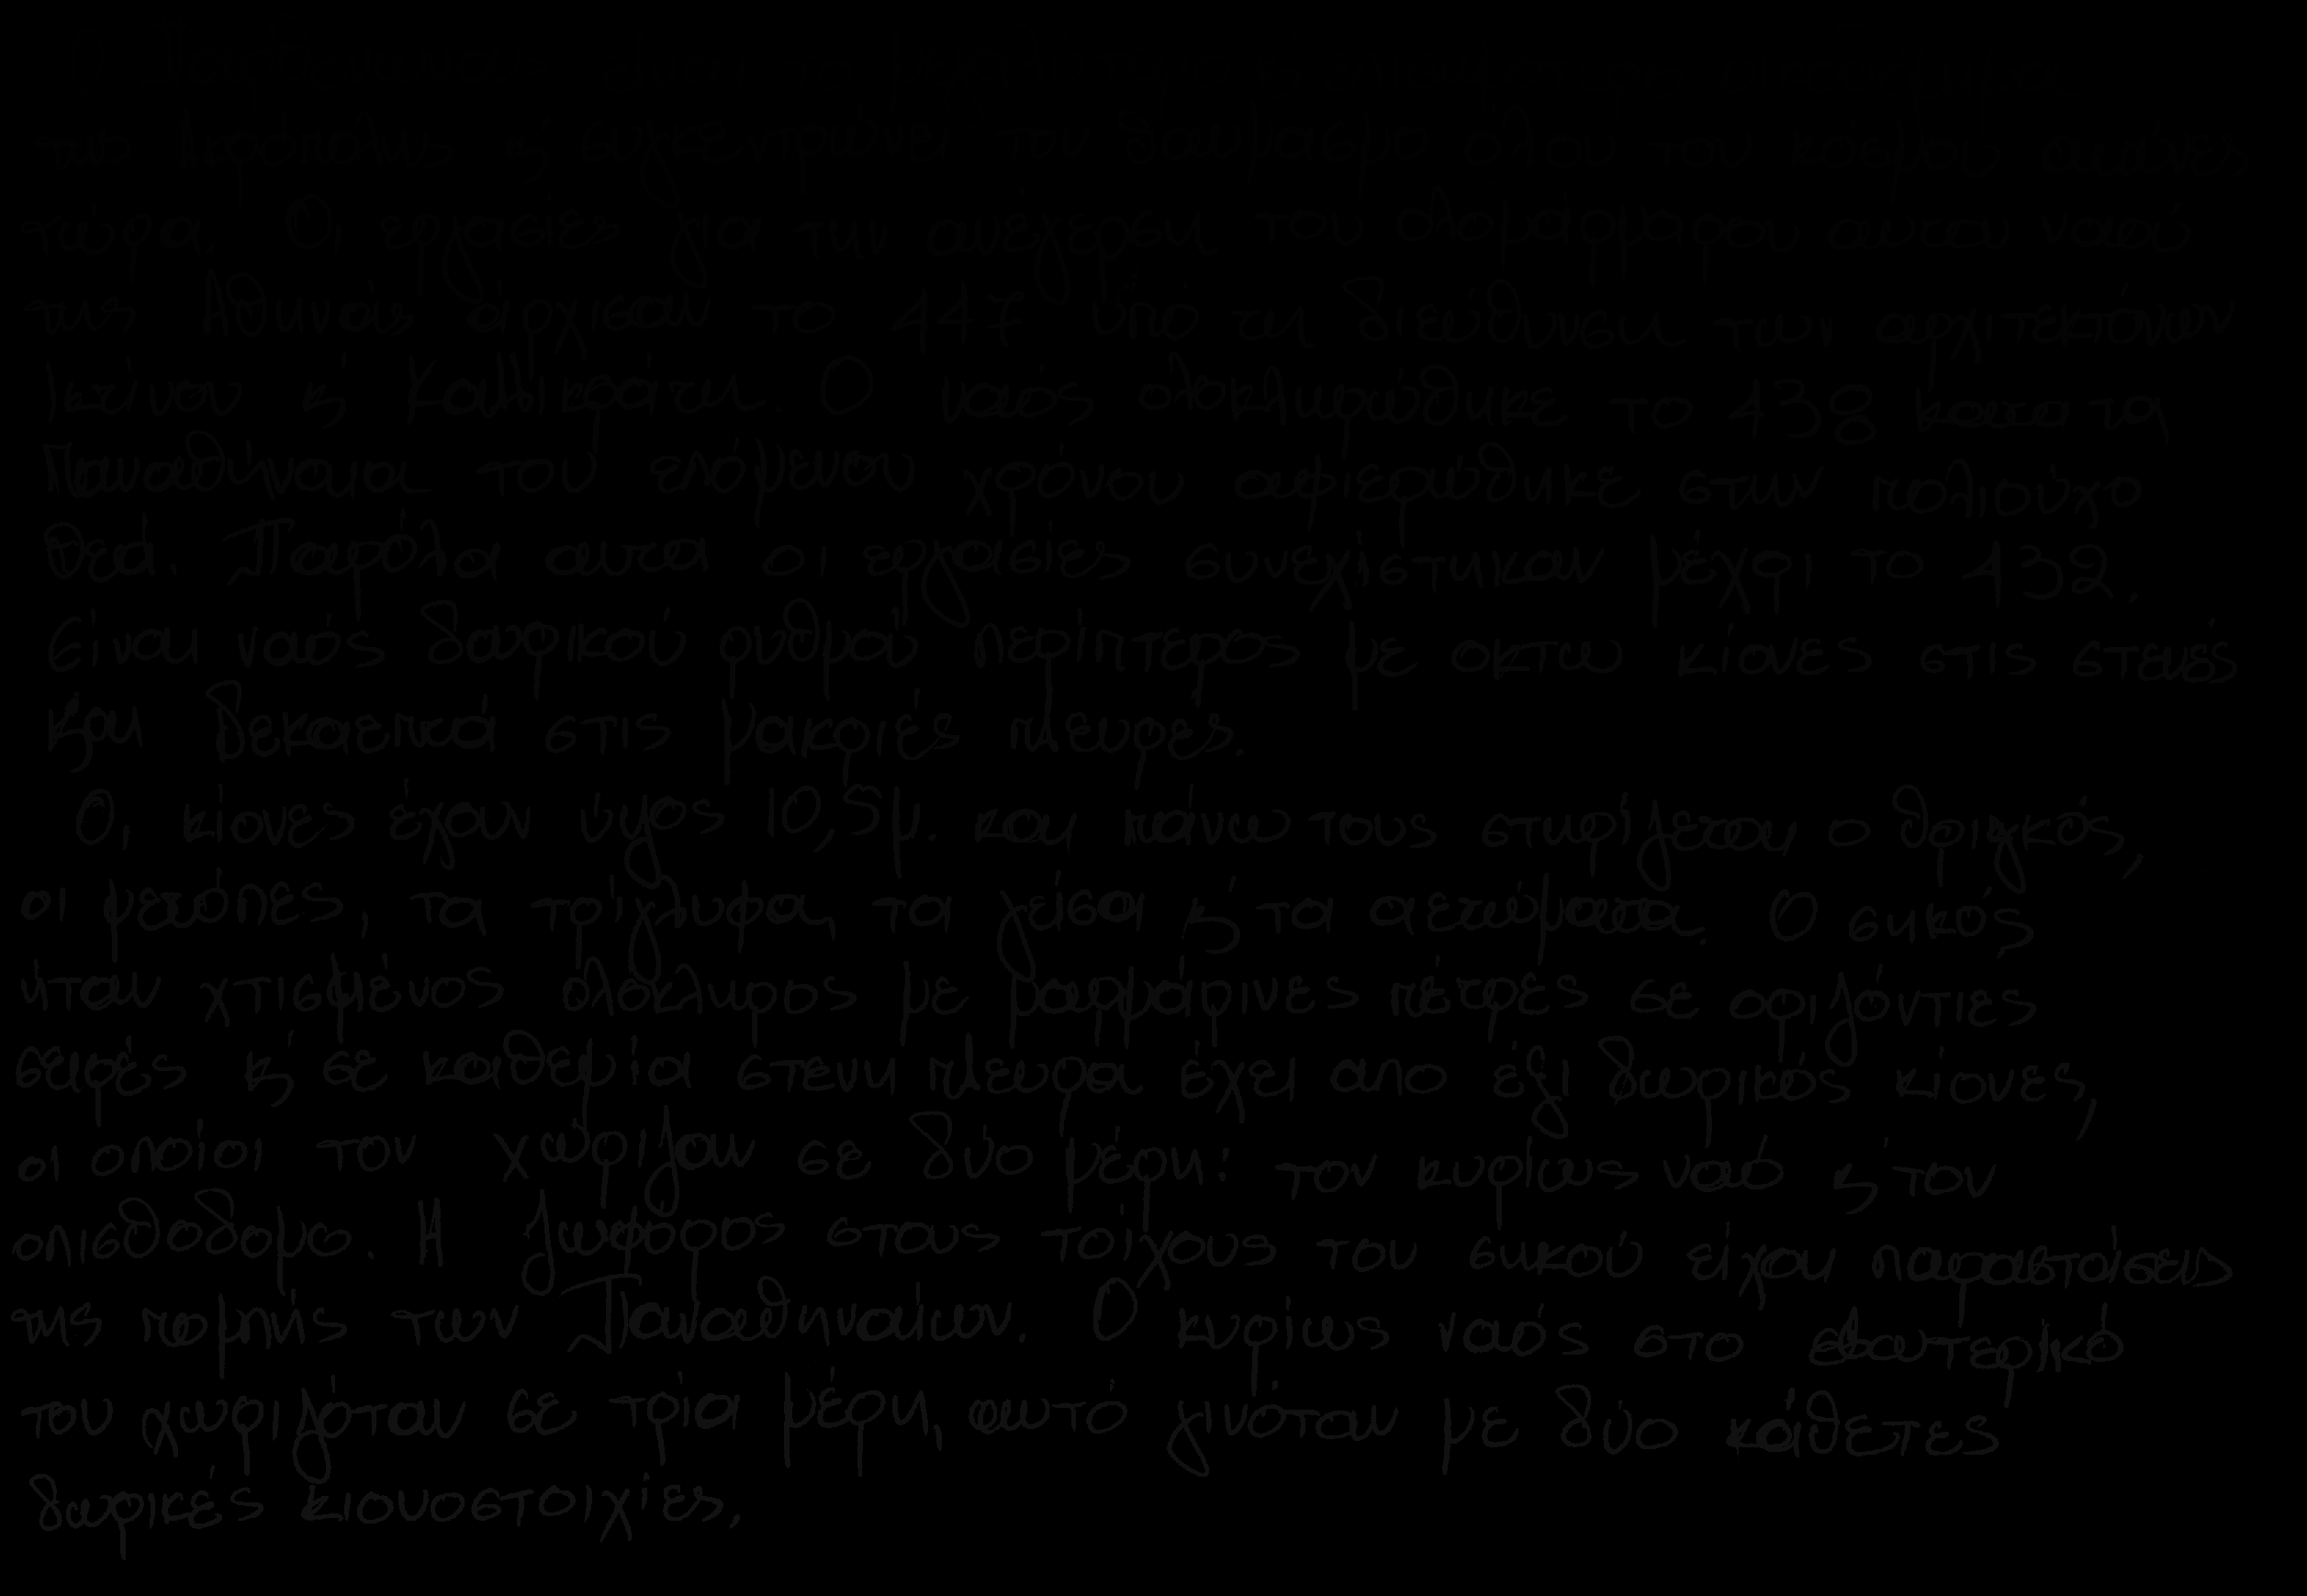 Ο Παρθενώνας είναι το
της Ακρόπολης κ' συγκεντρώνει τον θαυμασμό όλου του κόσμου
τώρα. Οι εργασίες για την ανέγερση του ολομάρμαρου αυτού ναού
της Αθηνάς άρχισαν το 447 υπό τη διεύθυνση των αρχιτεκτόνων
Ικτίνου κ' Καλλικράτη. Ο ναός ολοκληρώθηκε το 438 κατα τα
Παναθήναια του επόμενου χρόνου αφιερώθηκε στην πολιούχο
θεά. Παρόλα αυτα οι εργασίες συνεχίστηκαν μέχρι το 432.
Είναι ναός δωρικού ρυθμού περίπτερος με οκτω κίονες στις στενές
και δεκαεπτά στις μακριές πλευρές.
Οι κίονες έχουν ύψος 10,5μ. και πάνω τους στηρίζεται ο θριγκός,
οι μετόπες, τα τρίγλυφα, τα γείσα κ' τα αετώματα. Ο σηκός
ήταν χτισμένος ολόκληρος με μαρμάρινες πέτρες σε οριζόντιες
σειρές κ' σε καθεμία στενη πλευρα έχει απο έξι δωρικός κίονες,
οι οποίοι τον χώριζαν σε δύο μέρη: τον κυρίως ναό κ' τον
οπισθοδομο. Η ζωφορος στους τοίχους του σηκού είχαν παραστάσεις
της πομπής των Παναθηναίων. Ο κυρίως ναός στο εσωτερικό
του χωριζόταν σε τρία μέρη, αυτό γινόταν με δύο κάθετες
δωρικές κιονοστοιχίες.